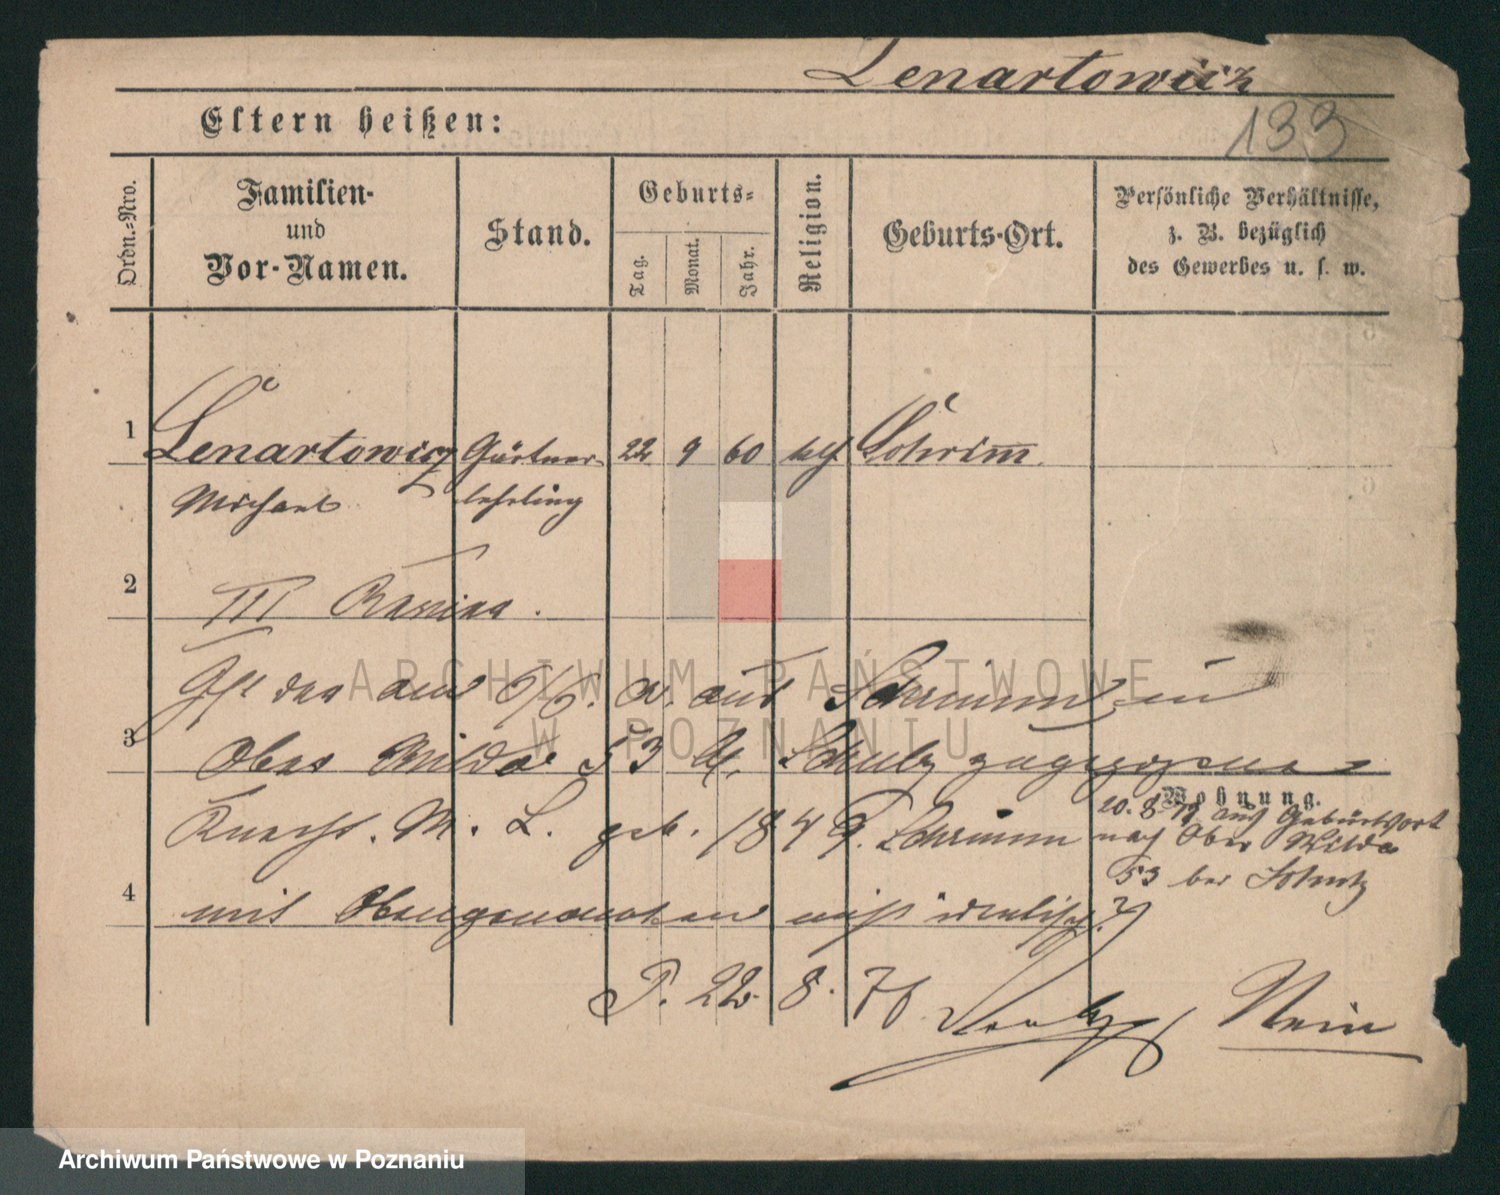 Lenartowicz
133
Eltern heißen:
Ordn.-Nro.
Familien-
und
Vor-Namen.
Stand.
Geburts-
Tag.
Monat.
Jahr.
Religion.
Geburts-Ort.
Persönliche Verhältnisse,
z. B. bezüglich
des Gewerbes u. s. w.
1 Lenartowicz Gärtner- 22 9 60 kth Schrimm
Michael lehrling
2
III
Ist der am 6/6. cr. aus Schrimm in
3 Ober Wilda 53 b. Schulz zugezogene
Wohnung.
Knecht. M. L. geb. 1849. Schrimm
20.8.78 aus Geburtsort
nach Ober Wilda
53 bei Schulz
4 mit Obengenannten nicht identisch?
P. 22. 8. 78
Nein
ARCHIWUM PAŃSTWOWE
W POZNANIU
Archiwum Państwowe w Poznaniu